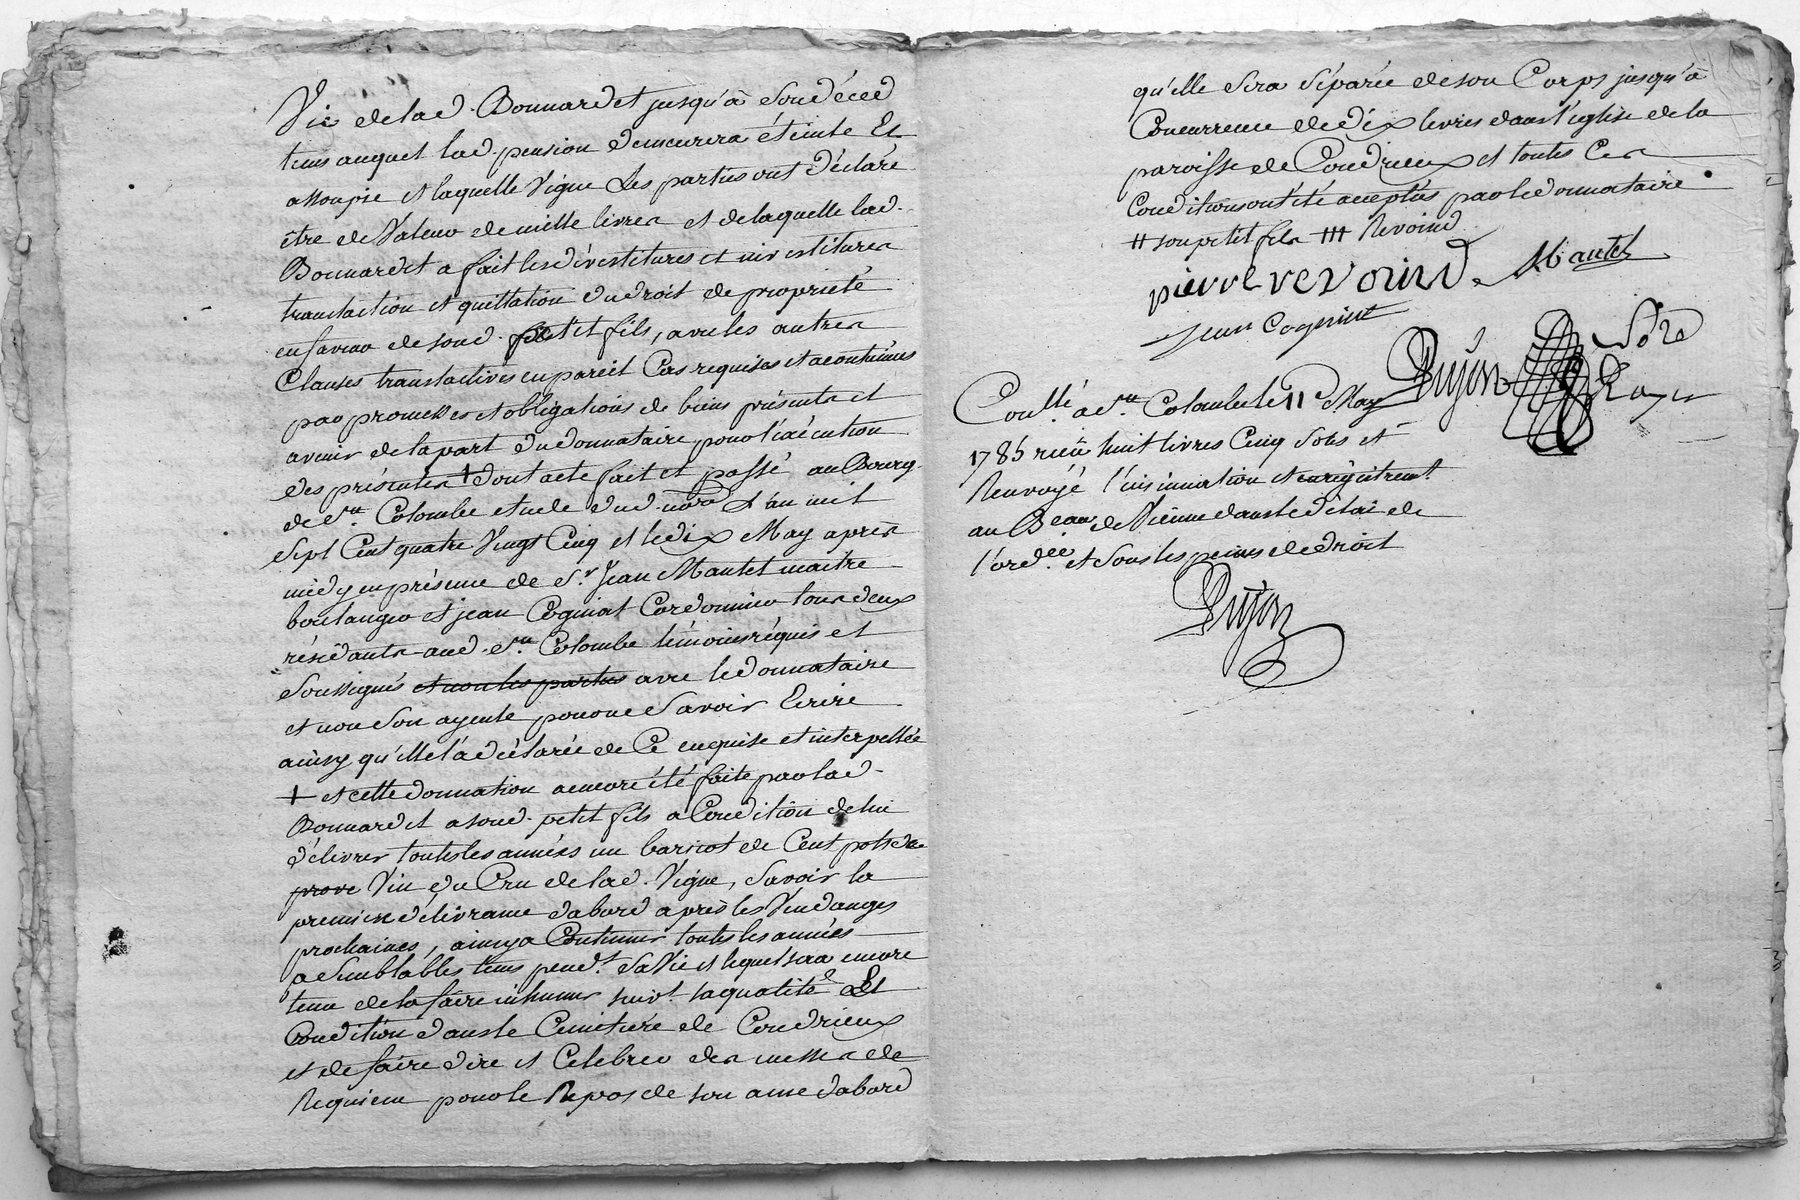 Vie de lad. Bonnardet jusqu'à son décèd
tems auquel lad. pension demeurera éteinte Et
assoupie et laquelle Vigne les parties ont déclaré
être de Valeur de mille livres et de laquelle lad.
Bonnardet a fait les dévestitures et investitures
translaction et quittation du droit de propriété
en faveur de sond. petit fils, avec les autres
Clauses translactives en pareil Cas requises et acoutumées
par promesses et obligations de biens présents et
avenir de la part du donnataire pour l'éxécution
des présentes + dont acte fait et passé au Bourg
de Ste. Colombe etude dud. nore L'an mil
Sept Cent quatre Vingt Cinq et le dix May après
midy en présence de Sr. Jean Mantet maitre
boulanger et jean Cogniat Cordonnier tous deux
résidants aud. Ste. Colombe témoins réquis et
Soussignés et non les parties avec le donnataire
et non Son ayeule pour ne Savoir Ecrire
ainsy qu'elle l'a déclarée de Ce enquise et interpellée
+ et cette donnation a encore été faite par lad.
Bonnardet a sond. petit fils a Condition de lui
délivrer toutes les années un baricot de Cent pots de
prove Vin du Cru de lad. Vigne, Savoir la
premiere délivrance d'abord après les Vendanges
prochaines, ainsy a Continuer toutes les années
a Semblables tems pendt. Sa Vie et lequel sera encore
tenu de la faire inhumer suivt. sa qualité Et
Condition dans le Cimetiere de Condrieux
et de faire dire et Celebrer des messes de
Requiem pour le Repos de son ame d'abord
qu'elle Sera Séparée de son Corps jusqu'à
Concurrence de dix livres dans l'église de la
paroisse de Condrieux et toutes Ces
Conditions ont été acceptées par le donnataire
# son petit fils # Revoind
pierre revoind Mantet
jean Cogniat
Dujon
Conllé a Ste. Colombe le 11 May
1785 recu huit livres Cinq Sols et
Renvoyé l'insinuation et enregistremt.
au Beau de Vienne dans le délai de
l'ordce. et Sous les peines de droit
Dujon